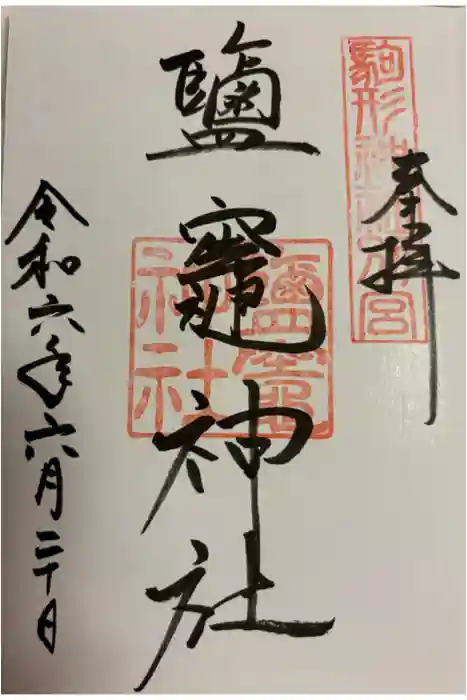 奉拝
駒形神社
鹽竈神社
鹽竈
神社
令和六年六月二十日